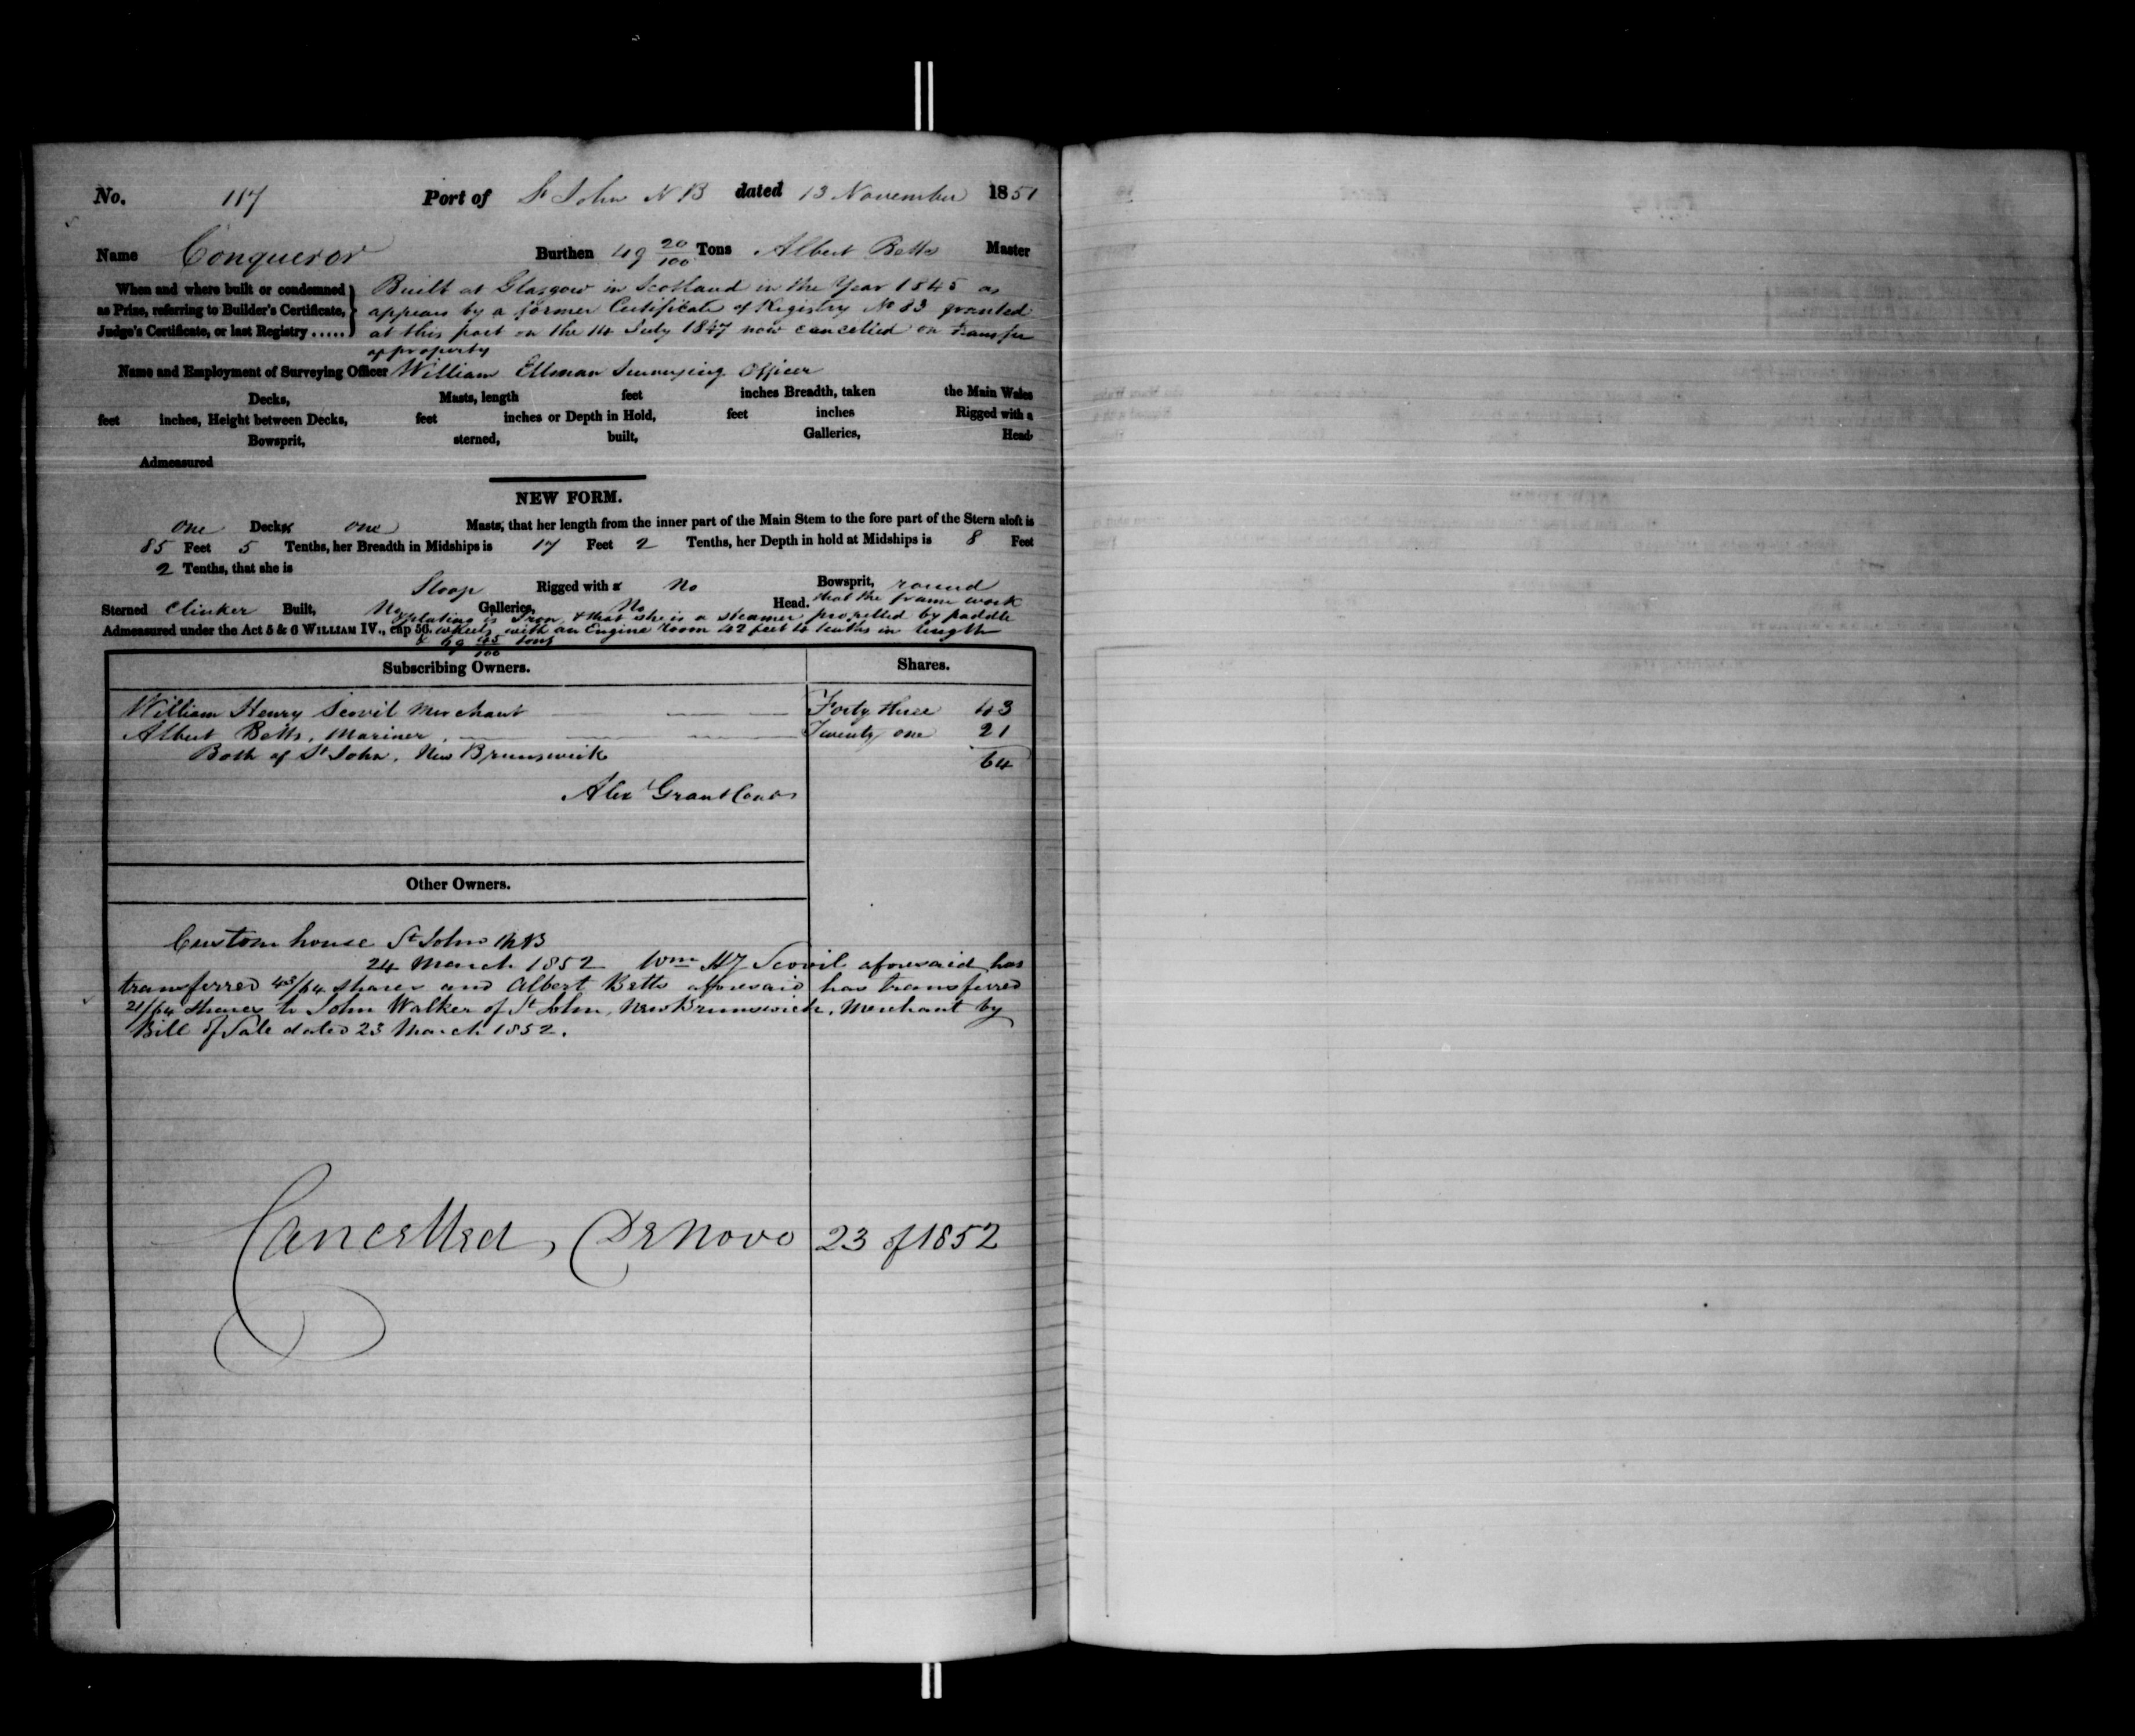 No. 117 Port of St John N B dated 13 November 1851
Name Conqueror Burthen 49 20/100 Tons Albert Betts Master
When and where built or condemned as Prize, referring to Builder's Certificate, Judge's Certificate, or last Registry.....
Built at Glasgow in Scotland in the Year 1845 as
appears by a former Certificate of Registry No 83 granted
at this port on the 14 July 1847 now cancelled on transfer
of property
Name and Employment of Surveying Officer William Ellman Surveying Officer
Decks, Masts, length feet inches Breadth, taken the Main Wales
feet inches, Height between Decks, feet inches or Depth in Hold, feet inches Rigged with a
Bowsprit, sterned, built, Galleries, Head,
Admeasured
NEW FORM.
one Decks one Masts, that her length from the inner part of the Main Stem to the fore part of the Stern aloft is
85 Feet 5 Tenths, her Breadth in Midships is 17 Feet 2 Tenths, her Depth in hold at Midships is 8 Feet
2 Tenths, that she is
Sloop Rigged with a No Bowsprit, round
Sterned Clinker Built, No Galleries, No Head. that the frame work
& plating is Iron, & that she is a steamer propelled by paddle
Admeasured under the Act 5 & 6 WILLIAM IV., cap 56. wheels with an Engine Room 42 feet 10 tenths in length
& 69 45/100 tons
Subscribing Owners. Shares.
William Henry Scovil Merchant Forty three 43
Albert Betts, Mariner, Twenty one 21
Both of St John, New Brunswick 64
Alex Grant
Other Owners.
Custom house St John NB
24 March 1852 Wm Hy Scovil aforesaid has
transferred 43/64 shares and Albert Betts aforesaid has transferred
21/64 Shares to John Walker of St John, New Brunswick, Merchant by
Bill of Sale dated 23 March 1852.
Cancelled, De Novo 23 of 1852